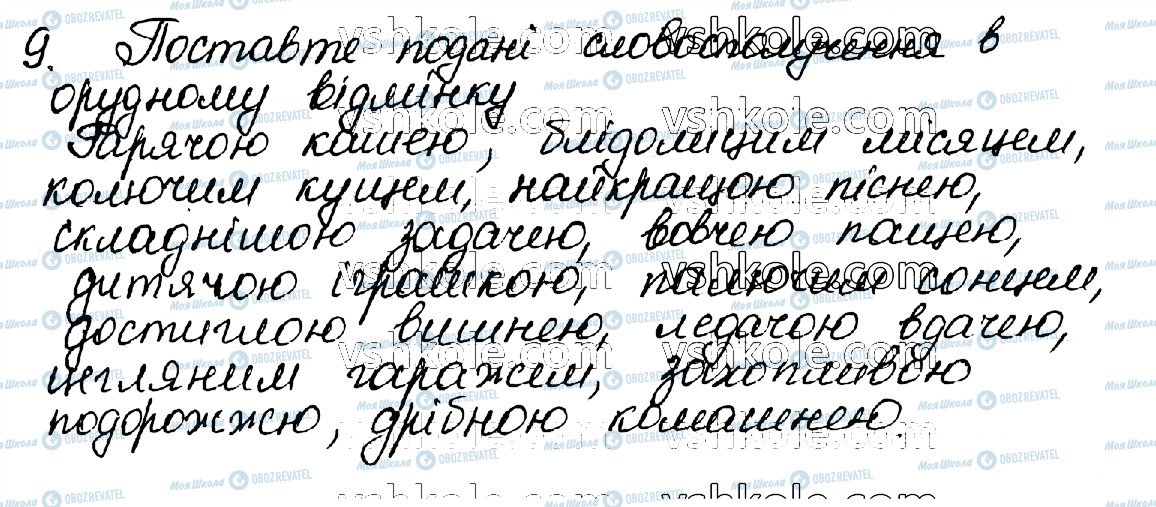 9. Поставте подані словосполучення в
орудному відмінку
Гарячою кашею, блідолицим місяцем,
колючим кущем, найкращою піснею,
складнішою задачею, вовчею пащею,
дитячою іграшкою, палючим сонцем,
достиглою вишнею, ледачою вдачею,
цегляним гаражем, захопливою
подорожжю, дрібною комашнею.